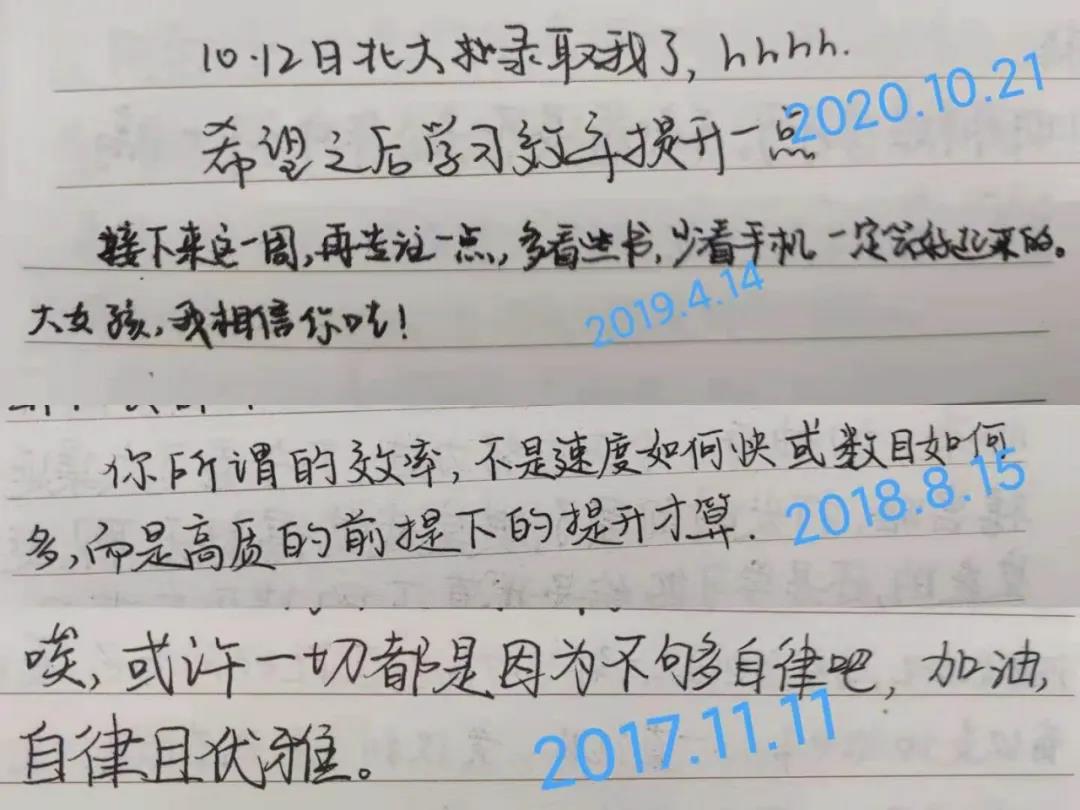 10.12日北大拟录取我了, hhhh.
2020.10.21
希望之后学习效率提升一点
接下来这一周,再专注一点,多看些书,少看手机 一定会好起来的。
大女孩,我相信你哒!
2019.4.14
你所谓的效率,不是速度如何快或数目如何
多,而是高质的前提下的提升才算.
2018.8.15
唉,或许一切都是因为不够自律吧,加油,
自律且优雅。
2017.11.11